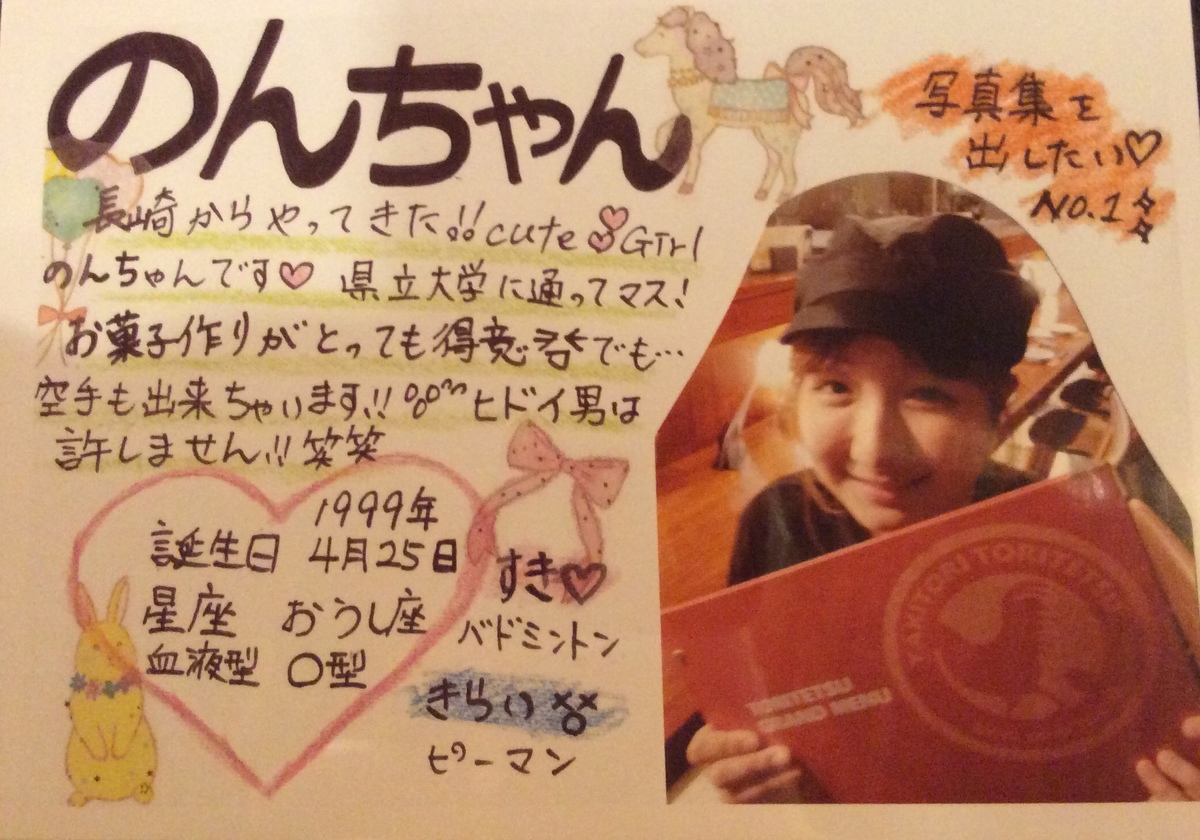 のんちゃん
写真集を
出したい♡
NO.1
長崎からやってきた!!cute Girl
のんちゃんです♡ 県立大学に通ってマス!
お菓子作りがとっても得意でも…
空手も出来ちゃいます!! ヒドイ男は
許しません!!笑笑
1999年
誕生日 4月25日
星座 おうし座
血液型 O型
すき♡
バドミントン
きらい
ピーマン
YAKITORI TORITETSU
TORITETSU
GRAND MENU